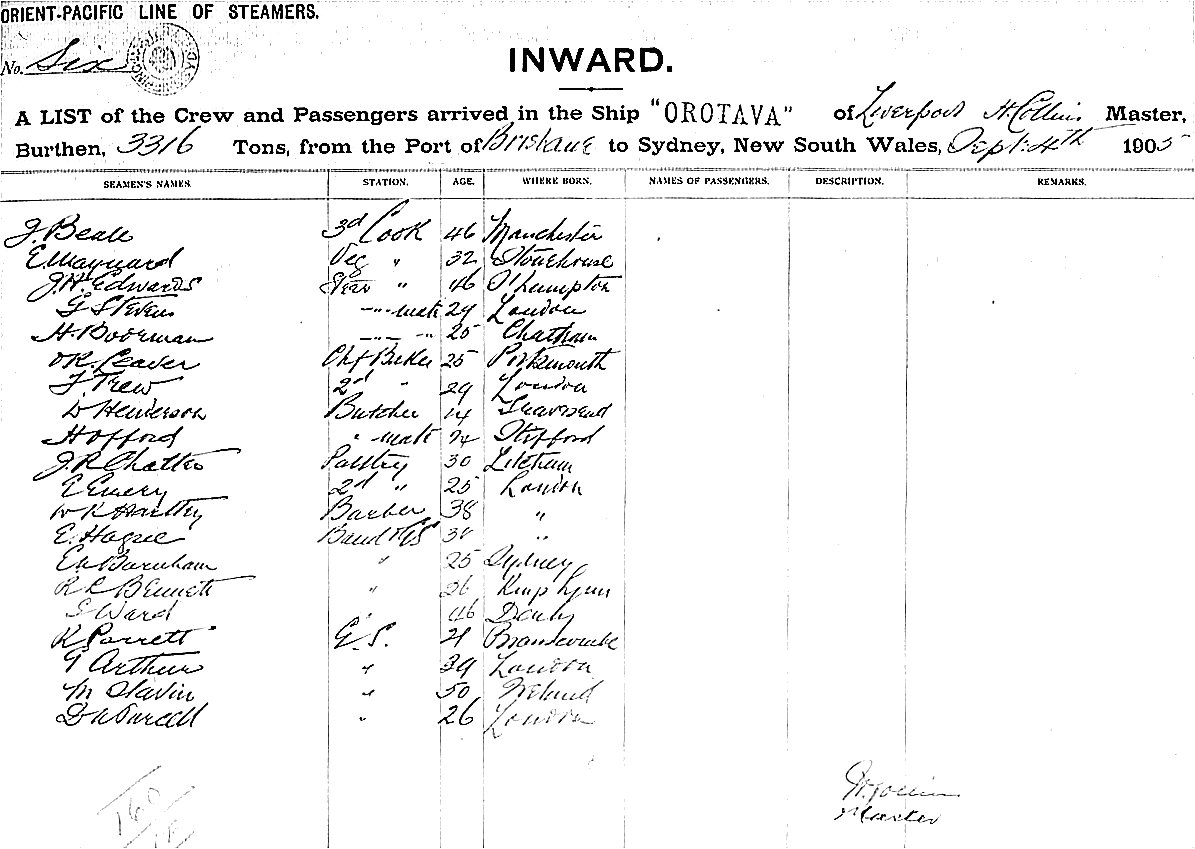 ORIENT-PACIFIC LINE OF STEAMERS.
No. Six
INWARD.
A LIST of the Crew and Passengers arrived in the Ship "OROTAVA" of Liverpool H. Collins Master,
Burthen, 3316 Tons, from the Port of Brisbane to Sydney, New South Wales, Sept: 4th 1905
SEAMEN'S NAMES. STATION. AGE. WHERE BORN. NAMES OF PASSENGERS. DESCRIPTION. REMARKS.
J. Beale 3rd Cook 46 Manchester
E. Maynard Veg " 32 Stonehouse
J. H. Edwards " 46 S'hampton
G Stevens -"- mate 29 London
H. Boorman -"- -"- 25 Chatham
Leaver Chf Baker 25 Portsmouth
J. Trew 2d " 29 London
D Henderson Butcher Gravesend
H Offord " mate 24
J. R. Chatter Pastry 30
E Emery 2d " 25 London
W K Hartley Barber 38 "
E. Hague Band & GS "
Burnham " 25 Sydney
R L Bennett " 26 Kings Lynn
S Ward " 46 Derby
K Parrett G.S. 21 Branscombe
G Arthur " 39 London
M Slavin " 50 Ireland
Purcell " 26 London
160
H. Collins
Master